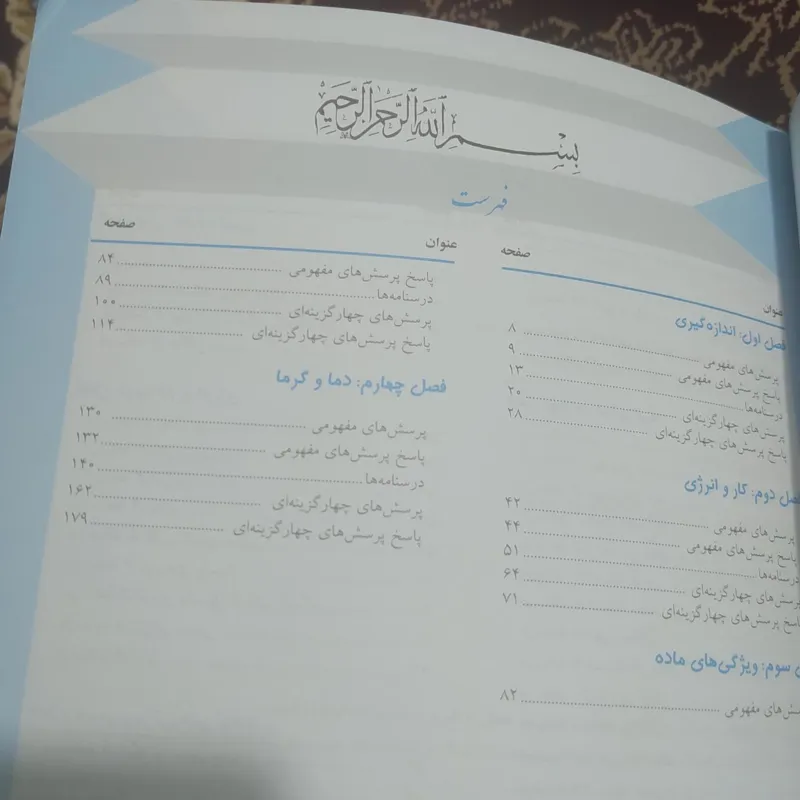 بسم الله الرحمن الرحیم
فهرست
عنوان صفحه
فصل اول: اندازه‌گیری
پرسش‌های مفهومی ........ ۸
پاسخ پرسش‌های مفهومی ........ ۹
درسنامه‌ها ........ ۱۳
پرسش‌های چهارگزینه‌ای ........ ۲۰
پاسخ پرسش‌های چهارگزینه‌ای ........ ۲۸
فصل دوم: کار و انرژی
پرسش‌های مفهومی ........ ۴۲
پاسخ پرسش‌های مفهومی ........ ۴۴
درسنامه‌ها ........ ۵۱
پرسش‌های چهارگزینه‌ای ........ ۶۴
پاسخ پرسش‌های چهارگزینه‌ای ........ ۷۱
سوم: ویژگی‌های ماده
پرسش‌های مفهومی ........ ۸۲
عنوان صفحه
پاسخ پرسش‌های مفهومی ........ ۸۴
درسنامه‌ها ........ ۸۹
پرسش‌های چهارگزینه‌ای ........ ۱۰۰
پاسخ پرسش‌های چهارگزینه‌ای ........ ۱۱۴
فصل چهارم: دما و گرما
پرسش‌های مفهومی ........ ۱۳۰
پاسخ پرسش‌های مفهومی ........ ۱۳۲
درسنامه‌ها ........ ۱۴۰
پرسش‌های چهارگزینه‌ای ........ ۱۶۲
پاسخ پرسش‌های چهارگزینه‌ای ........ ۱۷۹